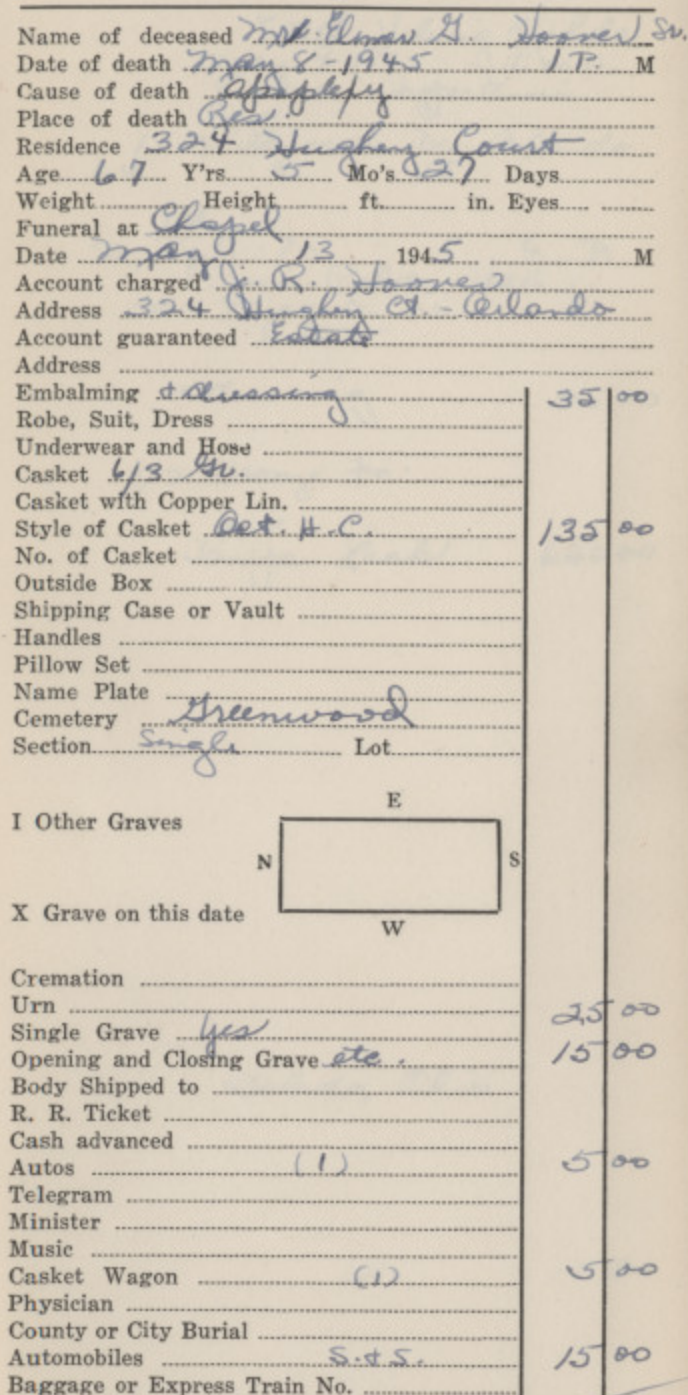 Name of deceased Mrs. Elmer G. Hoover Sr.
Date of death May 8-1945 1 P. M
Cause of death Apoplexy
Place of death Res.
Residence 324 Hughey Court
Age 67 Y'rs. 5 Mo's 27 Days
Weight Height ft. in. Eyes
Funeral at Chapel
Date May 13 1945 M
Account charged J. R. Hoover
Address 324 Hughey Ct. - Orlando
Account guaranteed Estate
Address
Embalming & dressing 35 00
Robe, Suit, Dress
Underwear and Hose
Casket 6/3 Gr.
Casket with Copper Lin.
Style of Casket Oct. H.C. 135 00
No. of Casket
Outside Box
Shipping Case or Vault
Handles
Pillow Set
Name Plate
Cemetery Greenwood
Section Single Lot
E
I Other Graves
N S
X Grave on this date
W
Cremation
Urn
Single Grave yes 25 00
Opening and Closing Grave etc. 15 00
Body Shipped to
R. R. Ticket
Cash advanced
Autos (1) 5 00
Telegram
Minister
Music
Casket Wagon (1) 5 00
Physician
County or City Burial
Automobiles S. & S. 15 00
Baggage or Express Train No.